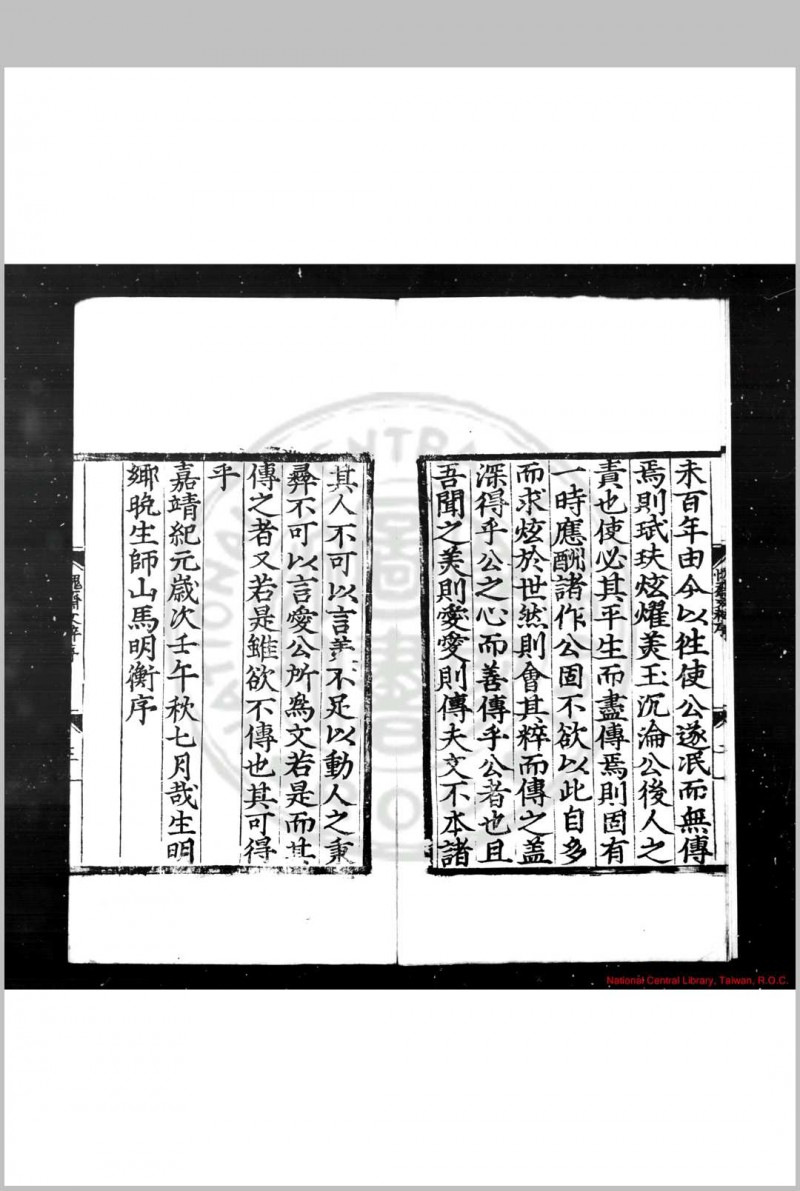 未百年由今以徃使公遂泯而無傳
焉則珷玞炫燿美玉沉淪公後人之
責也使必其平生而盡傳焉則固有
一時應酬諸作公固不欲以此自多
而求炫於世然則會其粹而傳之盖
深得乎公之心而善傳乎公者也且
吾聞之美則愛愛則傳夫文不本諸
其人不可以言美不足以動人之秉
彛不可以言愛公所為文若是而其
傳之者又若是雖欲不傳也其可得
乎
嘉靖紀元歲次壬午秋七月哉生明
鄉晚生師山馬明衡序
愧齋文粹序
National Central Library, Taiwan, R.O.C.